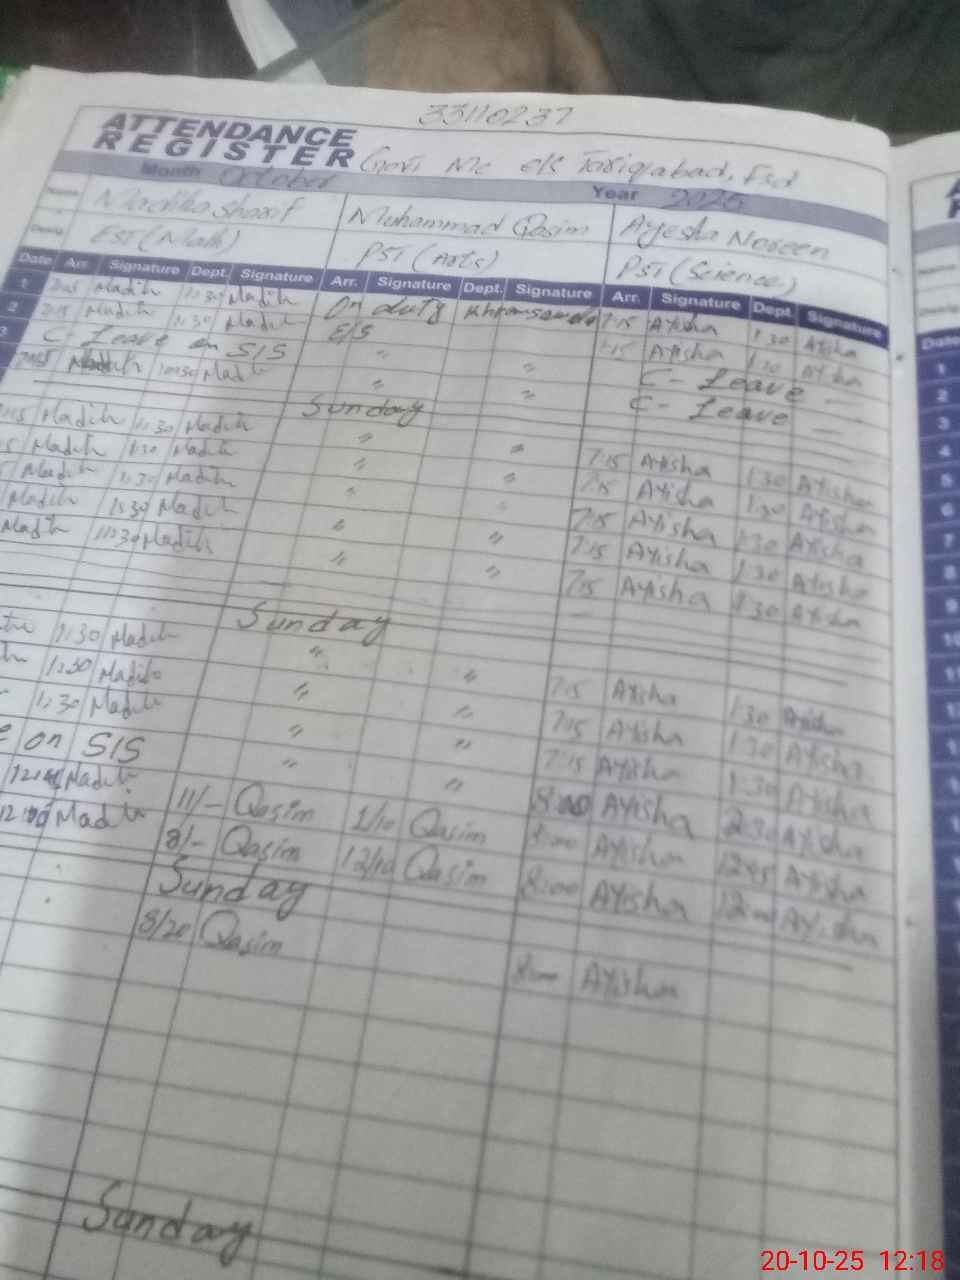 33110237
ATTENDANCE
REGISTER Govt Mc e/s Tariqabad, Fsd
Month October Year 2025
Name Madiha Sharif Muhammad Qasim Ayesha Noreen
Desig EST (Math) PST (Arts) PST (Science)
Date Arr. Signature Dept. Signature Arr. Signature Dept. Signature Arr. Signature Dept. Signature
1 7:15 Madih 1:30 Madih On duty 7:15 Ayisha 1:30 Ayisha
2 7:15 Madih 1:30 Madih E/S 7:15 Ayisha 1:30 Ayisha
3 C-Leave on SIS " " C-Leave
Madih Madih " " C-Leave
Sunday
7:15 Madih 1:30 Madih " " 7:15 Ayisha 1:30 Ayisha
Madih 1:30 Madih " " 7:15 Ayisha 1:30 Ayisha
Madih 1:30 Madih " " 7:15 Ayisha 1:30 Ayisha
Madih 1:30 Madih " " 7:15 Ayisha 1:30 Ayisha
Madih Madih " " 7:15 Ayisha 1:30 Ayisha
Sunday
1:30 Madih " " 7:15 Ayisha 1:30 Ayisha
1:30 Madih " " 7:15 Ayisha 1:30 Ayisha
1:30 Madih " " 7:15 Ayisha 1:30 Ayisha
on SIS " " 8:00 Ayisha 2:30 Ayisha
12:45 Madih 11/- Qasim 1/10 Qasim 8:00 Ayisha 12:45 Ayisha
12:00 Madih 8/- Qasim 12/10 Qasim 8:00 Ayisha 12:00 Ayisha
Sunday
8/20 Qasim 8:00 Ayisha
Sunday
Date
1
2
3
4
5
6
7
8
9
10
11
20-10-25 12:18